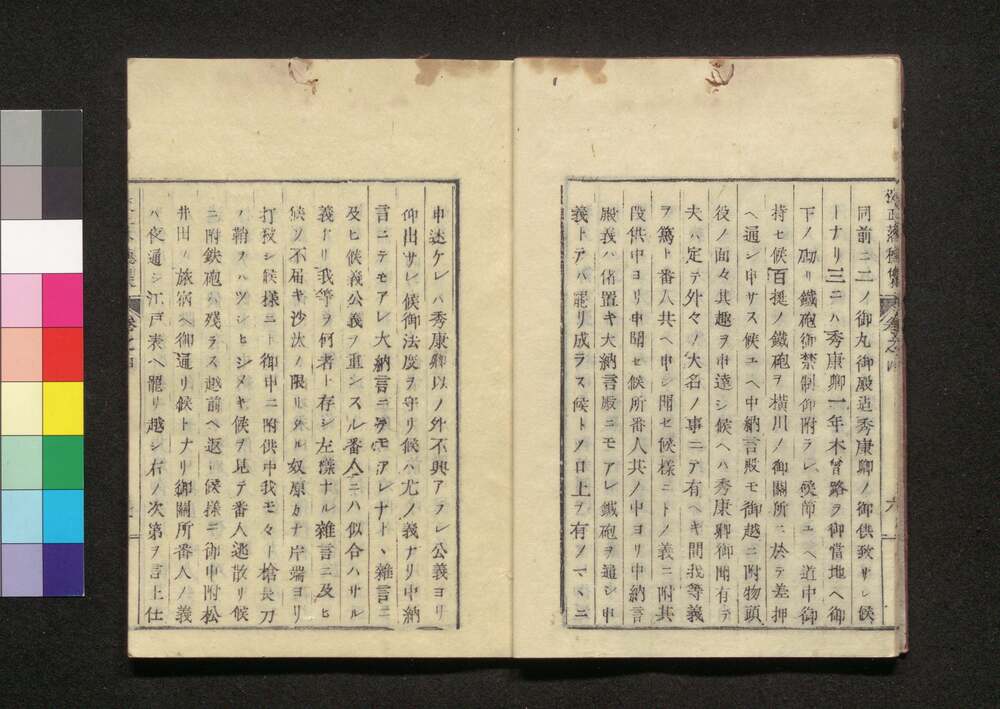 同前ニ二ノ御丸御殿迄秀康卿ノ御供致サレシ候
トナリ三ニハ秀康卿一年木曾路ヲ御當地ヘ御
下ノ砌リ鐵砲御禁制仰附ラレ候節ユヘ道中御
持セ候百挺ノ鐵砲ヲ横川ノ御關所ニ於テ差押
ヘ通シ申サス候ユヘ中納言殿モ御越ニ附物頭
役ノ面々其趣ヲ申達シ候ヘハ秀康卿御聞有テ
夫ハ定テ外々ノ大名ノ事ニテ有ヘキ間我等義
ヲ篤ト番人共ヘ申シ聞セ候様ニトノ義ニ附其
段供中ヨリ申聞セ候所番人共ノ中ヨリ中納言
殿義ハ偖置キ大納言殿ニモアレ鐵砲ヲ通シ申
義トテハ罷リ成ラス候トノ口上ヲ有ノマヽニ
申述ケレハ秀康卿以ノ外不興アラレ公義ヨリ
仰出サレ候御法度ヲ守リ候ハ尤ノ義ナリ中納
言ニテモアレ大納言ニテモアレナトヽ雜言ニ
及ヒ候義公義ヲ重ンスル番人ニハ似合ハサル
義ナリ我等ヲ何者ト存シ左樣ナル雜言ニ及ヒ
候ソ不届キ沙汰ノ限リナル奴原カナ片端ヨリ
打殺シ候様ニト御申ニ附供中我モ々々ト槍長刀
ノ鞘ヲハツシヒシメキ候ヲ見テ番人逃散リ候
ニ附鉄砲ハ残ラス越前ヘ返シ候様ニ御申附松
井田ノ旅宿ヘ御通リ候トナリ御關所番人ノ義
ハ夜通シ江戸表ヘ罷リ越シ右ノ次第ヲ言上仕